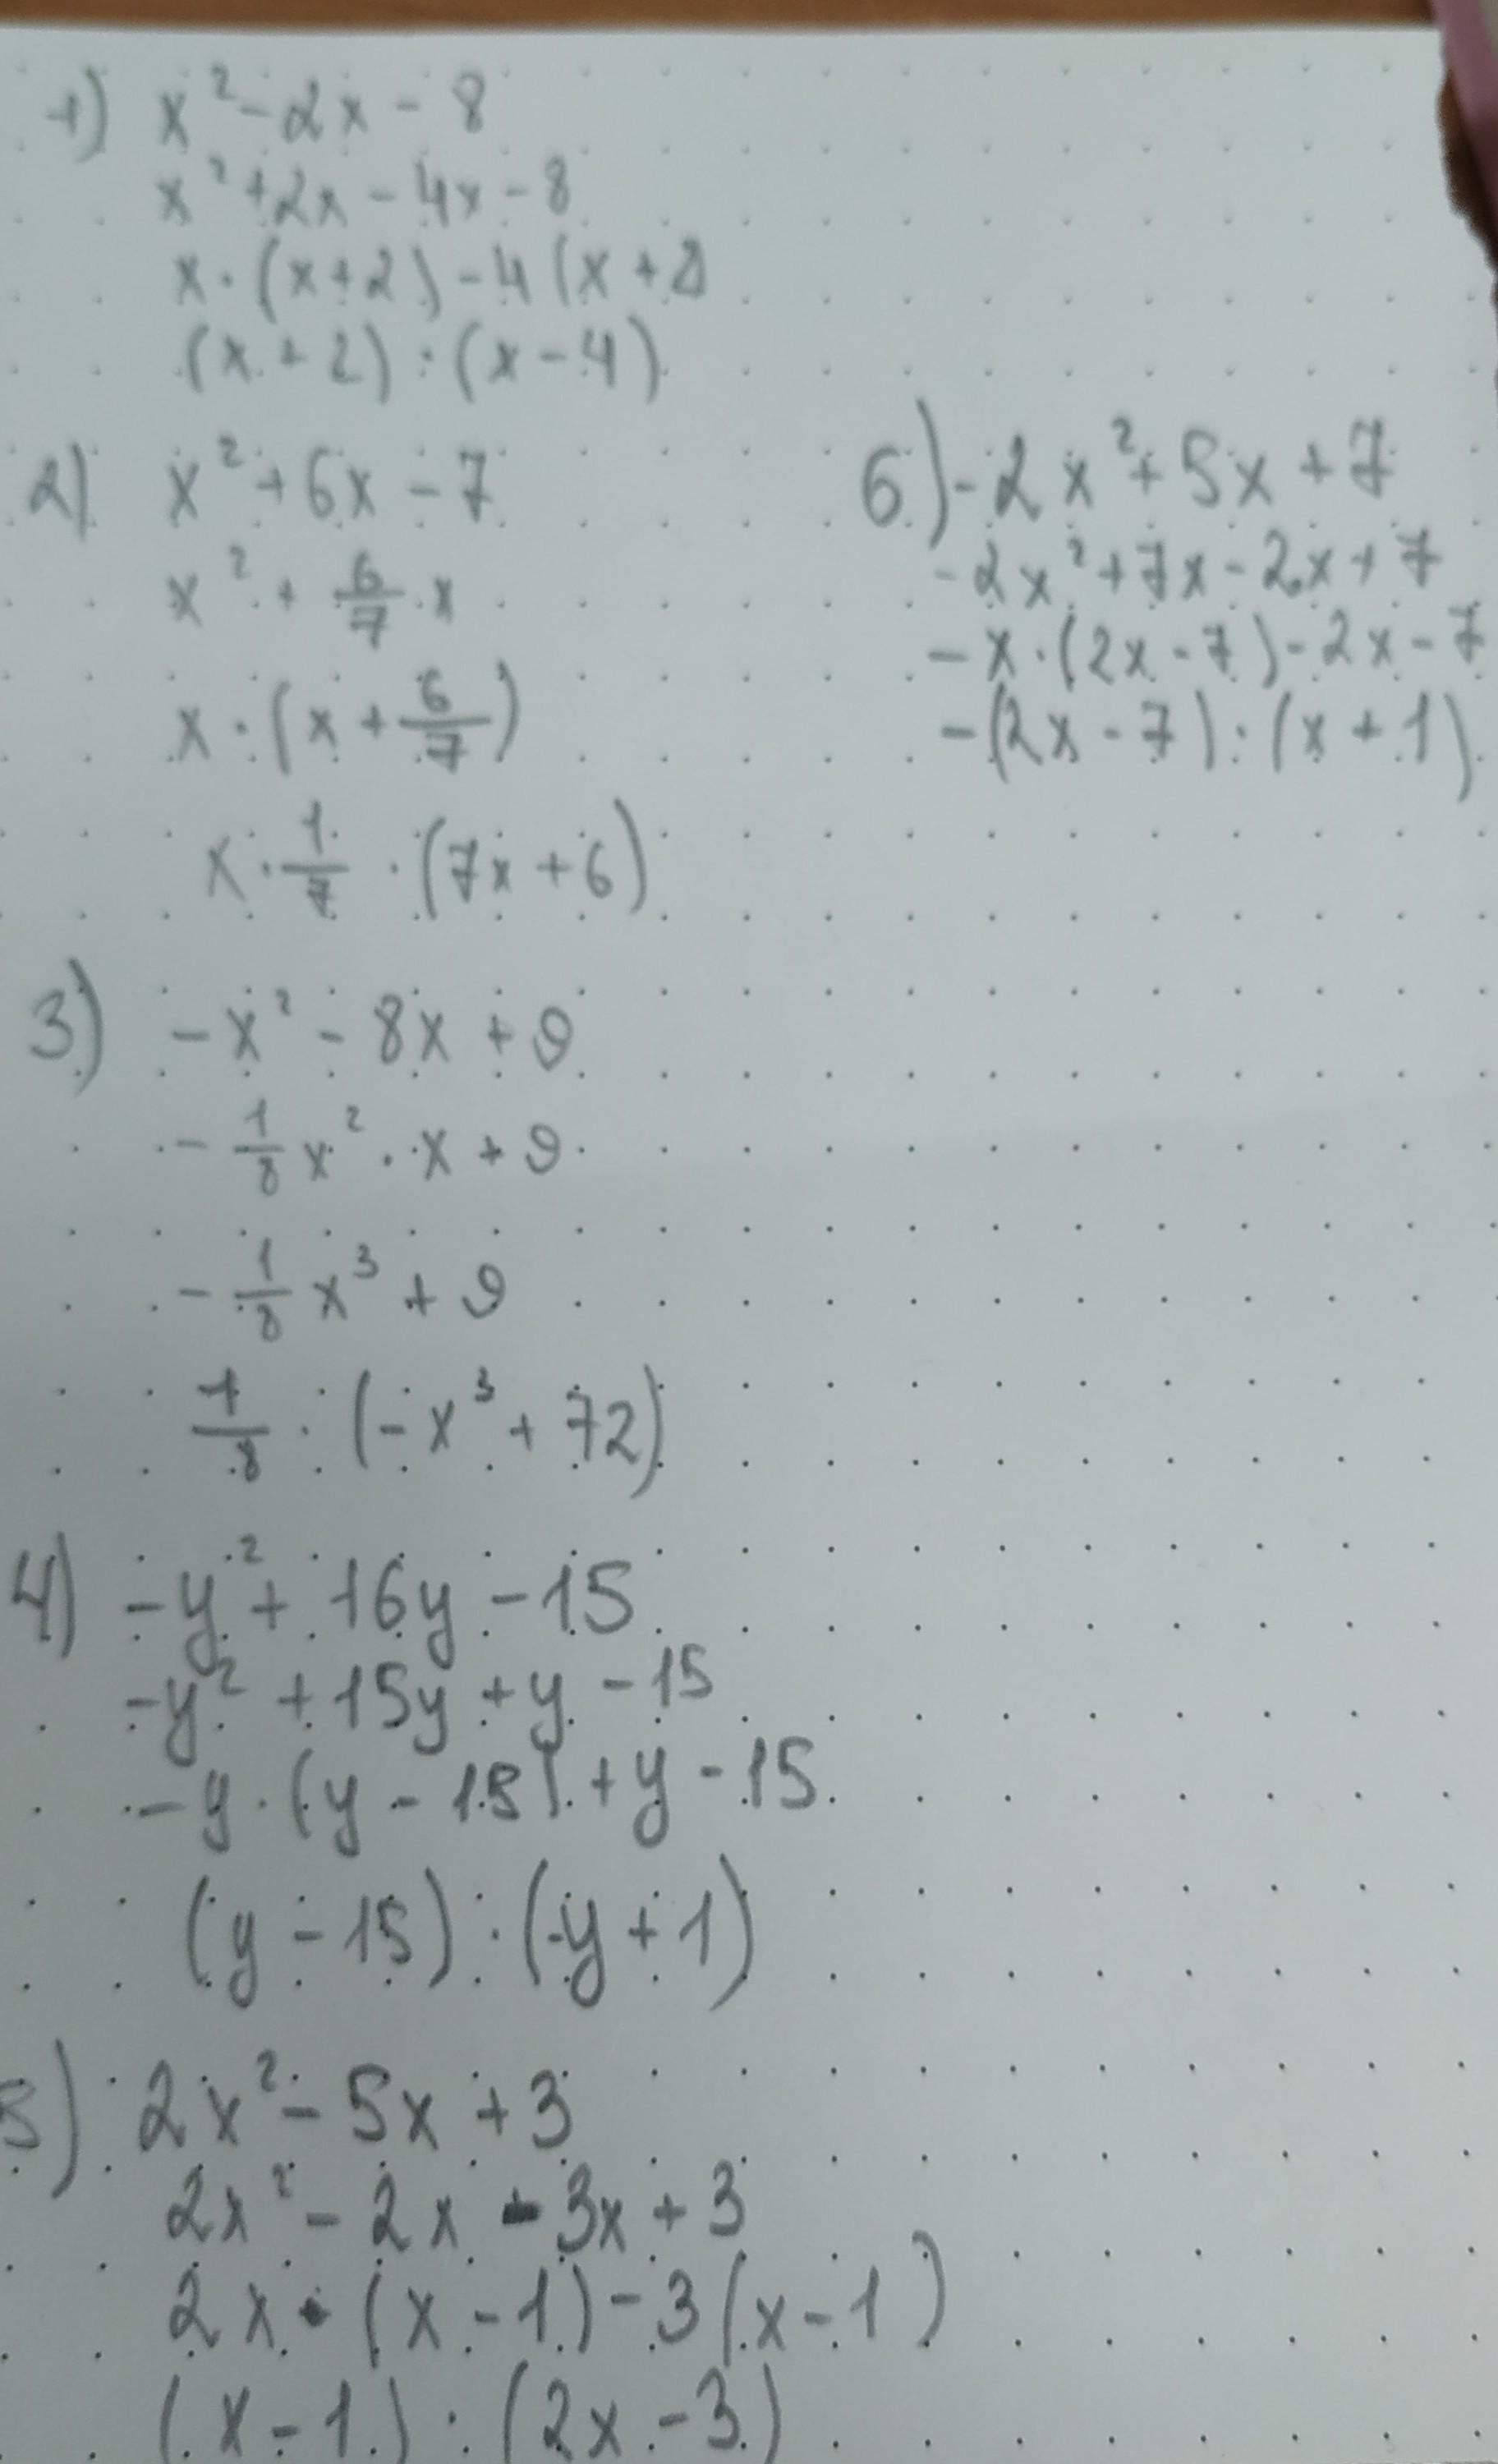 1) x² - 2x - 8
x² + 2x - 4x - 8
x · (x + 2) - 4 (x + 2
(x + 2) · (x - 4)
2) x² + 6x - 7
x² + 6/7 · x
x · (x + 6/7)
x · 1/7 · (7x + 6)
3) -x² - 8x + 9
- 1/8 x² · x + 9
- 1/8 x³ + 9
1/8 · (-x³ + 72)
4) -y² + 16y - 15
-y² + 15y + y - 15
-y · (y - 15) + y - 15
(y - 15) · (-y + 1)
5) 2x² - 5x + 3
2x² - 2x - 3x + 3
2x · (x - 1) - 3 (x - 1)
(x - 1) · (2x - 3)
6) -2x² + 5x + 7
-2x² + 7x - 2x + 7
-x · (2x - 7) - 2x - 7
-(2x - 7) · (x + 1)